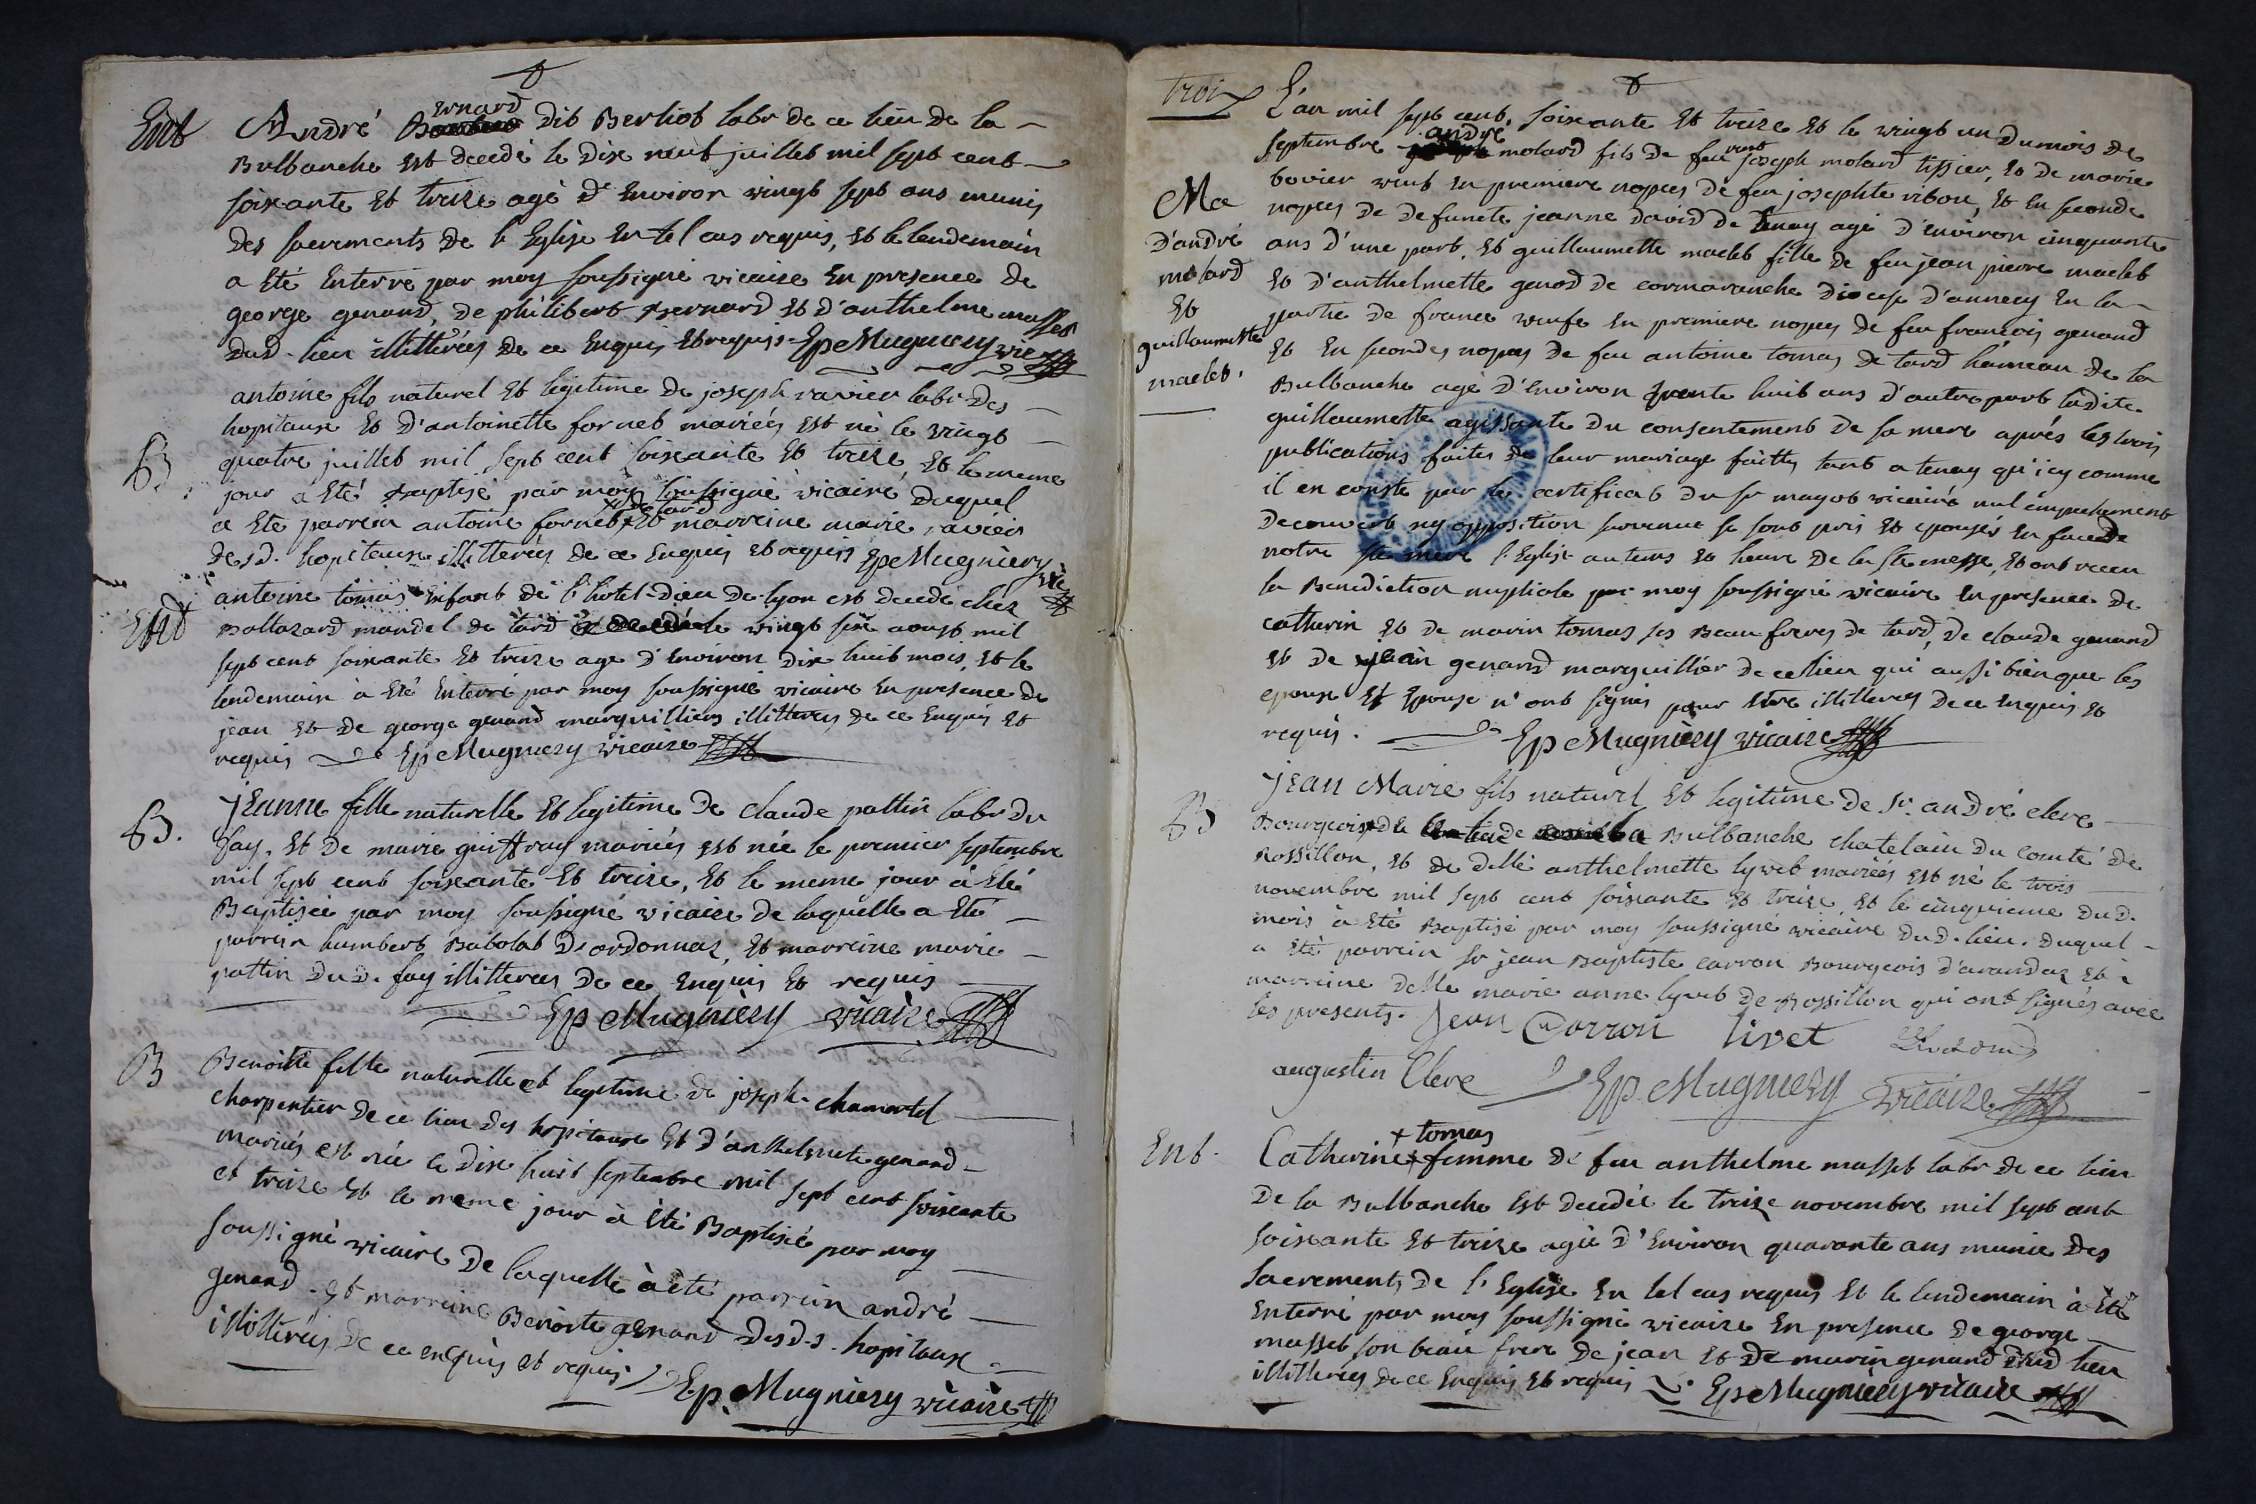 Ent André Bernard dit Berliot labr de ce lieu de la
Bulbanche est decedé le dix neuf juillet mil sept cent
soixante et treize agé d'environ vingt sept ans munis
des sacrements de l'Eglise en tel cas requis, et le lendemain
a été enterré par moy soussigné vicaire en presence de
george genand, de philibert Bernard et d'anthelme masset
dud. lieu illitterés de ce enquis et requis Ep Mugniery vic
antoine fils naturel et légitime de joseph ravier labr des
hopitaux et d'antoinette fornet mariés est né le vingt
B. quatre juillet mil sept cent soixante et treize et le meme
jour a été Baptisé par moy soussigné vicaire duquel
a été parrein antoine fornet de tard et marreine marie ravier
desd. hopitaux illitterés de ce enquis et requis Ep Mugniery vic
antoine tomas Enfant de l'hotel-dieu de lyon est decedé chez
Ent Baltazard mandel de tard le vingt six aoust mil
sept cent soixante et treize age d'environ dix huit mois, et le
lendemain à été enterré par moy soussigné vicaire en presence de
jean et de george genand marguilliers illitterés de ce enquis et
requis Ep Mugniery vicaire
B. jeanne fille naturelle et legitime de claude pattin labr du
fay, et de marie guiffray mariés est née le premier septembre
mil sept cent soixante et treize, et le meme jour à été
Baptisée par moy soussigné vicaire de laquelle a été
parrein humbert Babolat d'ordonnaz, et marreine marie
pattin dud. fay illitterés de ce enquis et requis
Ep Mugniery vicaire
B Benoitte fille naturelle et legitime de joseph chamortel
charpentier de ce lieu des hopitaux et d'anthelmete genand
mariés est née le dix huit septembre mil sept cent soixante
et treize et le meme jour à été Baptisée par moy
soussigné vicaire de laquelle à été parrein andré
genand et marreine Benoite genand desd.s hopitaux
illitterés de ce enquis et requis Ep Mugniery vicaire
troix
L'an mil sept cent soixante et treize et le vingt un du mois de
septembre andré molard fils de feu joseph molard tissier, et de marie
bovier veuf en premiere nopces de feu josephte ribou, et en seconde
Ma nopces de defuncte jeanne david de tenay agé d'environ cinquante
d'andré ans d'une part, et guillaumette maclet fille de feu jean pierre maclet
molard et d'anthelmette genod de cormaranche diocese d'annecy en la
et partie de france veufe en premiere nopces de feu francois genand
guillaumette et en secondes nopces de feu antoine tomas de tard hameau de la
maclet. Bulbanche agé d'environ trente huit ans d'autre part ladite
guillaumette agissante du consentement de sa mere aprés les trois
publications faites de leur mariage faittes tant a tenay qu'icy comme
il en conste par le certificat du sr mayot vicaire nul empechement
decouvert ny opposition survenue se sont pris et epousés en face de
notre ste mere l'Eglise au tems et heure de la ste messe, et ont receu
la Benediction nuptiale par moy soussigné vicaire en presence de
catherin et de marin tomas ses Beau freres de tard, de claude genand
et de jean genand marguillier de ce lieu qui aussi bien que les
epoux et Epouse n'ont signés pour etre illitterés de ce enquis et
requis. Ep Mugniery vicaire
jean Marie fils naturel et legitime de sr. andré cleve
B Bourgeois de la Bulbanche chatelain du comté de
Rossillon, et de delle anthelmette lyvet mariés est né le trois
novembre mil sept cent soixante et treize et le cinquieme dud.
mois à été Baptisé par moy soussigné vicaire dud. lieu. duquel
a été parrein sr jean Baptiste carron Bourgeois d'arandaz et
marreine delle marie anne lyvet de Rossillon qui ont signés avec
les presents. Jean Carron livet
augustin Cleve Ep Mugniery vicaire
Ent. Catherine + tomas femme de feu anthelme masset labr de ce lieu
de la Bulbanche est decedée le treize novembre mil sept cent
soixante et treize agée d'environ quarante ans munie des
sacrements de l'Eglise en tel cas requis et le lendemain à été
enterré par moy soussigné vicaire en presence de george
masset son beau frere de jean et de marin genand dud lieu
illitterés de ce enquis et requis Ep Mugniery vicaire